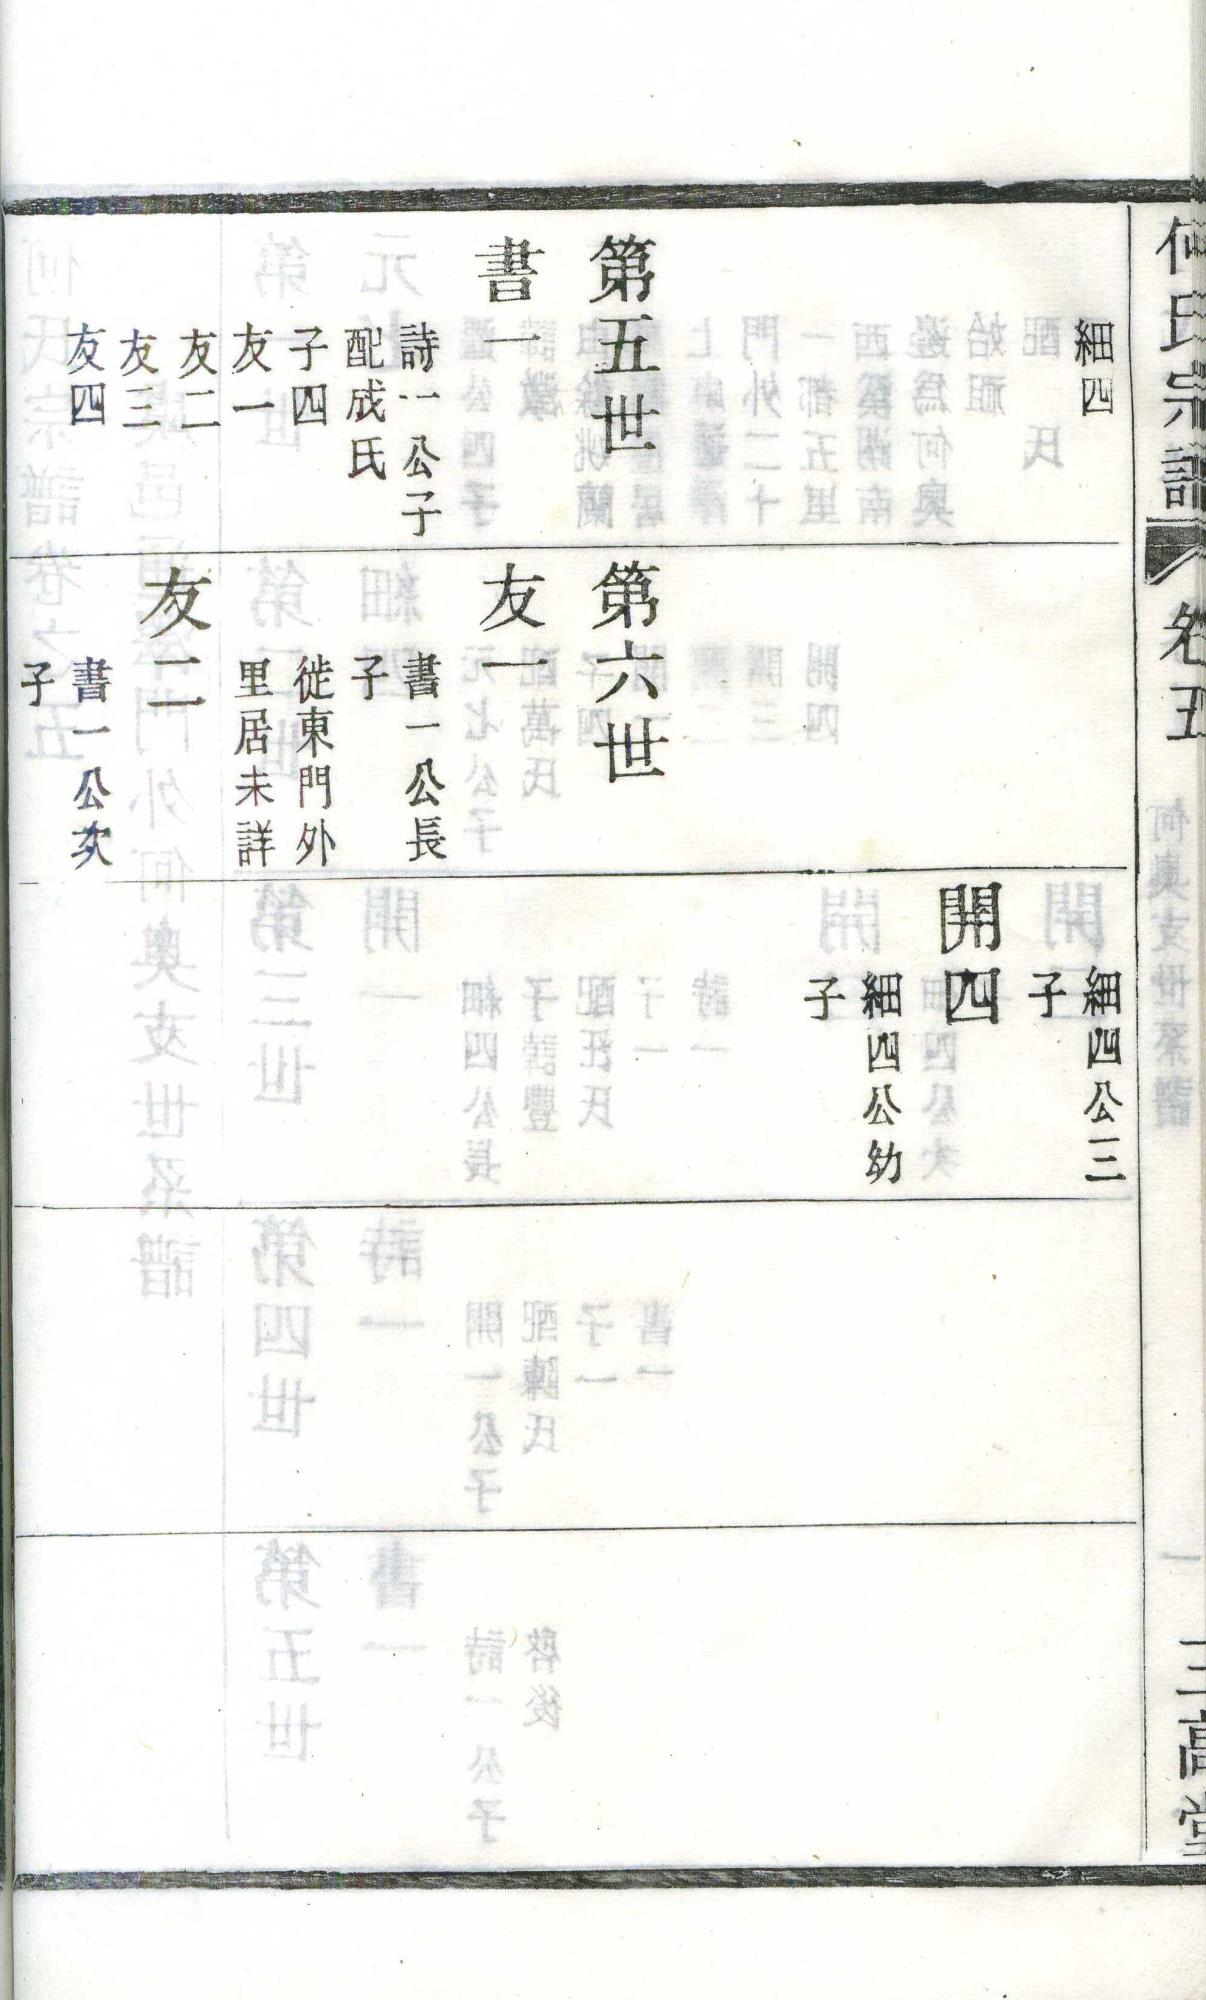 何氏宗譜
卷五
三高堂
細四
第五世
書一
詩一公子
配成氏
子四
友一
友二
友三
友四
第六世
友一
書一公長
子
徙東門外
里居未詳
友二
書一公次
子
細四公三
子
開四
細四公幼
子